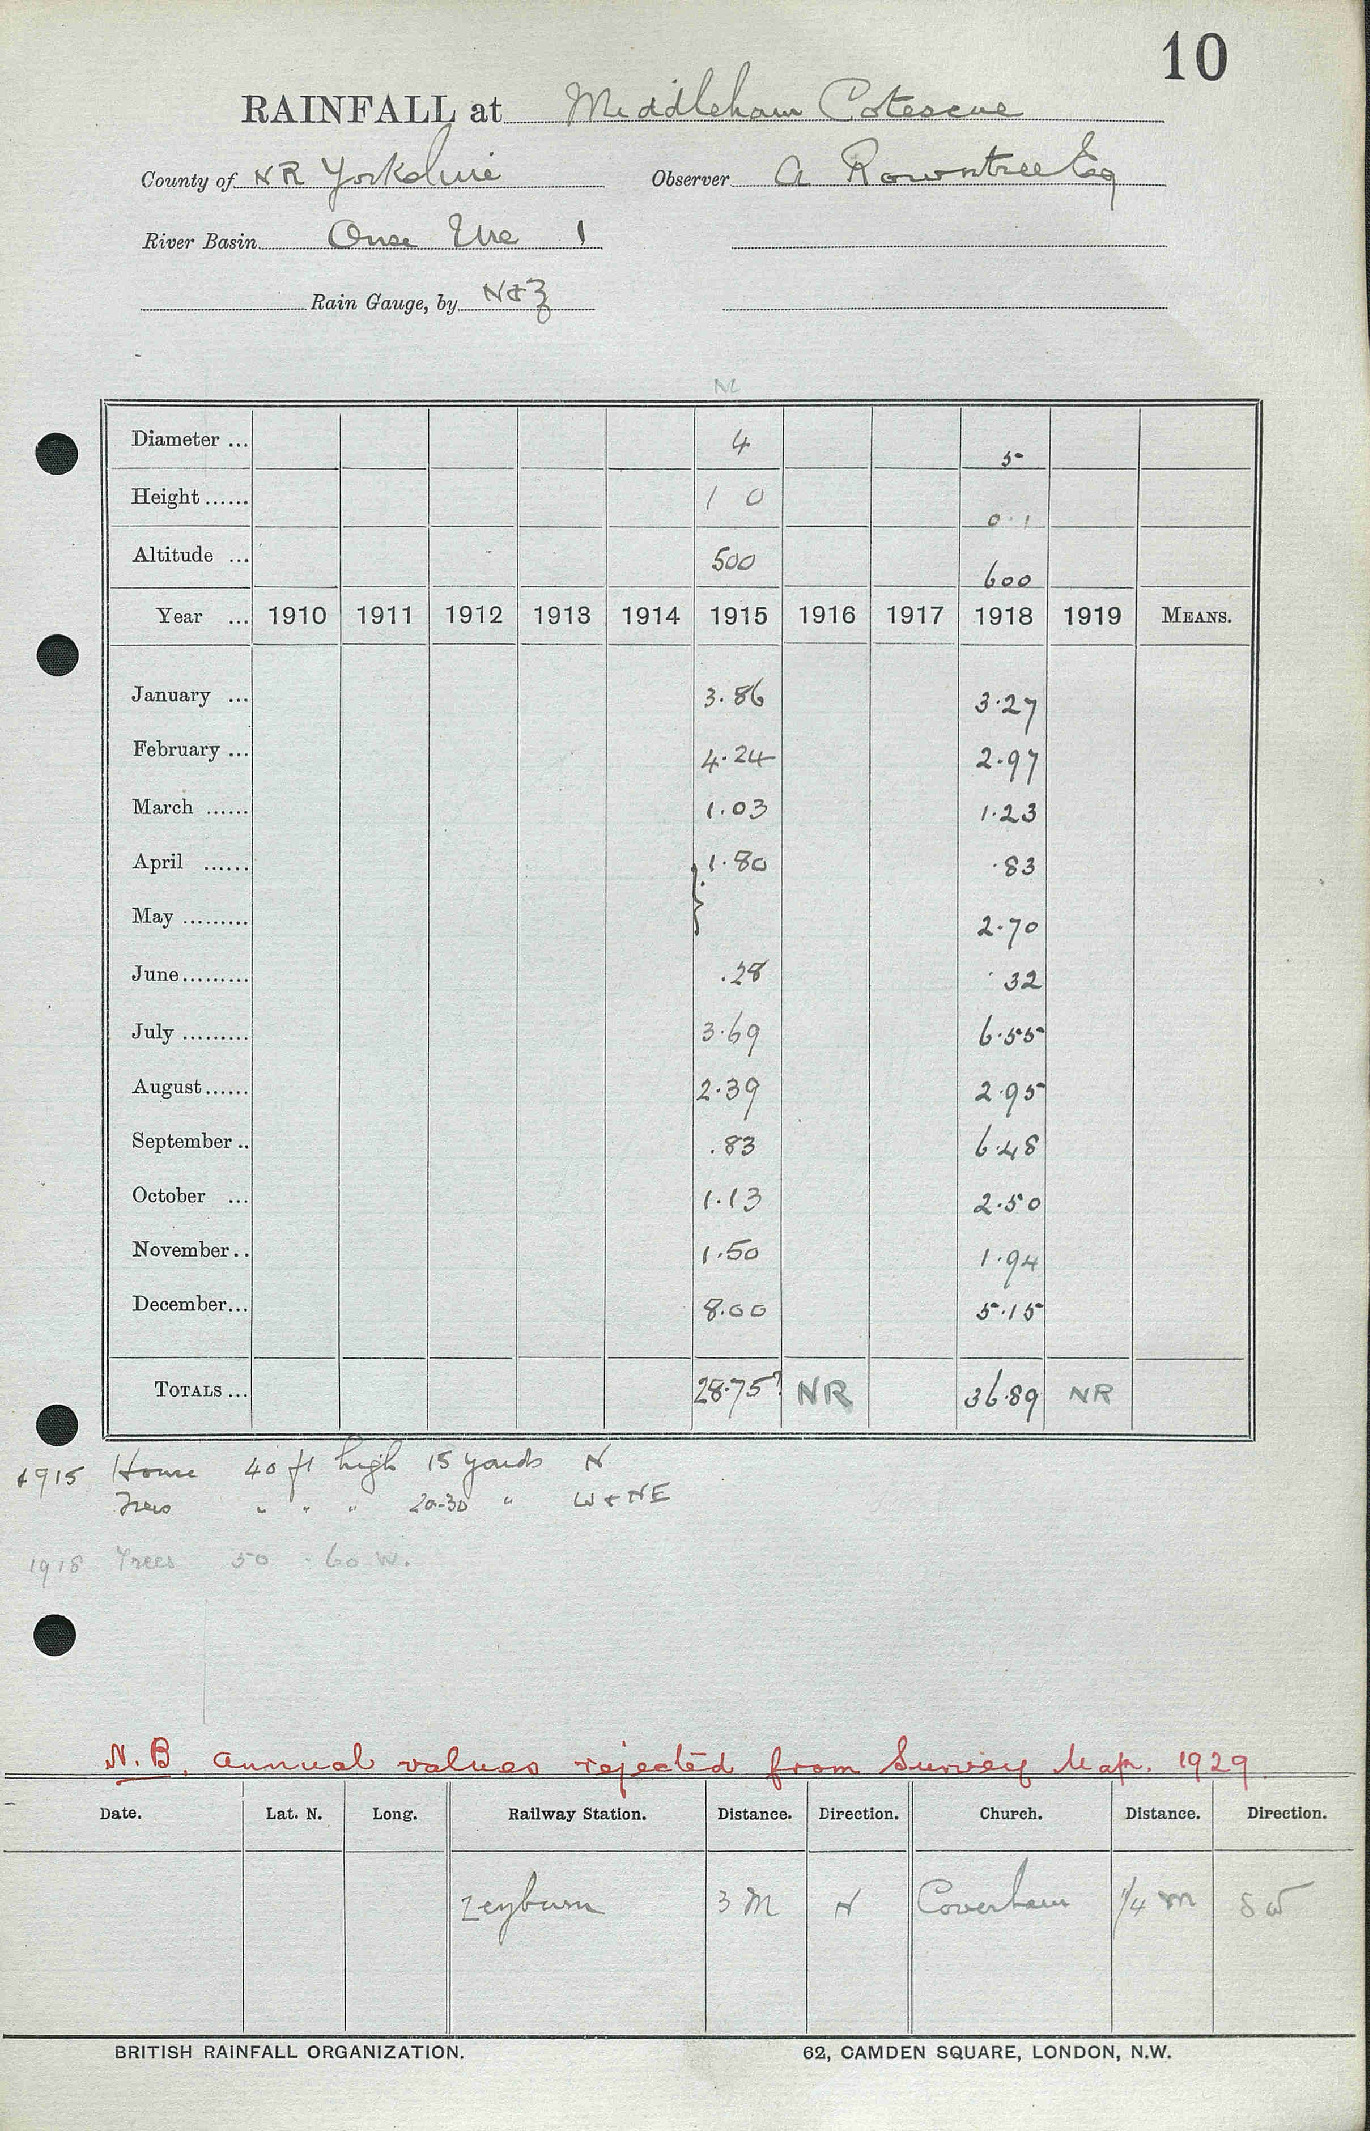 10
RAINFALL at Middleham Cotescue
County of NR Yorkshire Observer A Rowntree Esq
River Basin Ouse Ure 1
Rain Gauge, by N&Z
Diameter ... 4 5
Height ...... 1 0 0.1
Altitude ... 500 600
Year ... 1910 1911 1912 1913 1914 1915 1916 1917 1918 1919 MEANS.
January ... 3.86 3.27
February ... 4.24 2.97
March ...... 1.03 1.23
April ...... 1.80 .83
May ......... 2.70
June......... .28 .32
July ......... 3.69 6.55
August...... 2.39 2.95
September .. .83 6.48
October ... 1.13 2.50
November .. 1.50 1.94
December... 8.00 5.15
TOTALS ... 28.75? NR 36.89 NR
1915 House 40 ft high 15 yards N
Trees " " " 20-30 " W & NE
1918 Trees 50 - 60 W.
N.B. Annual values rejected from Survey Map. 1929
Date. Lat. N. Long. Railway Station. Distance. Direction. Church. Distance. Direction.
Leyburn 3 M N Coverham 1/4 m SW
BRITISH RAINFALL ORGANIZATION. 62, CAMDEN SQUARE, LONDON, N.W.